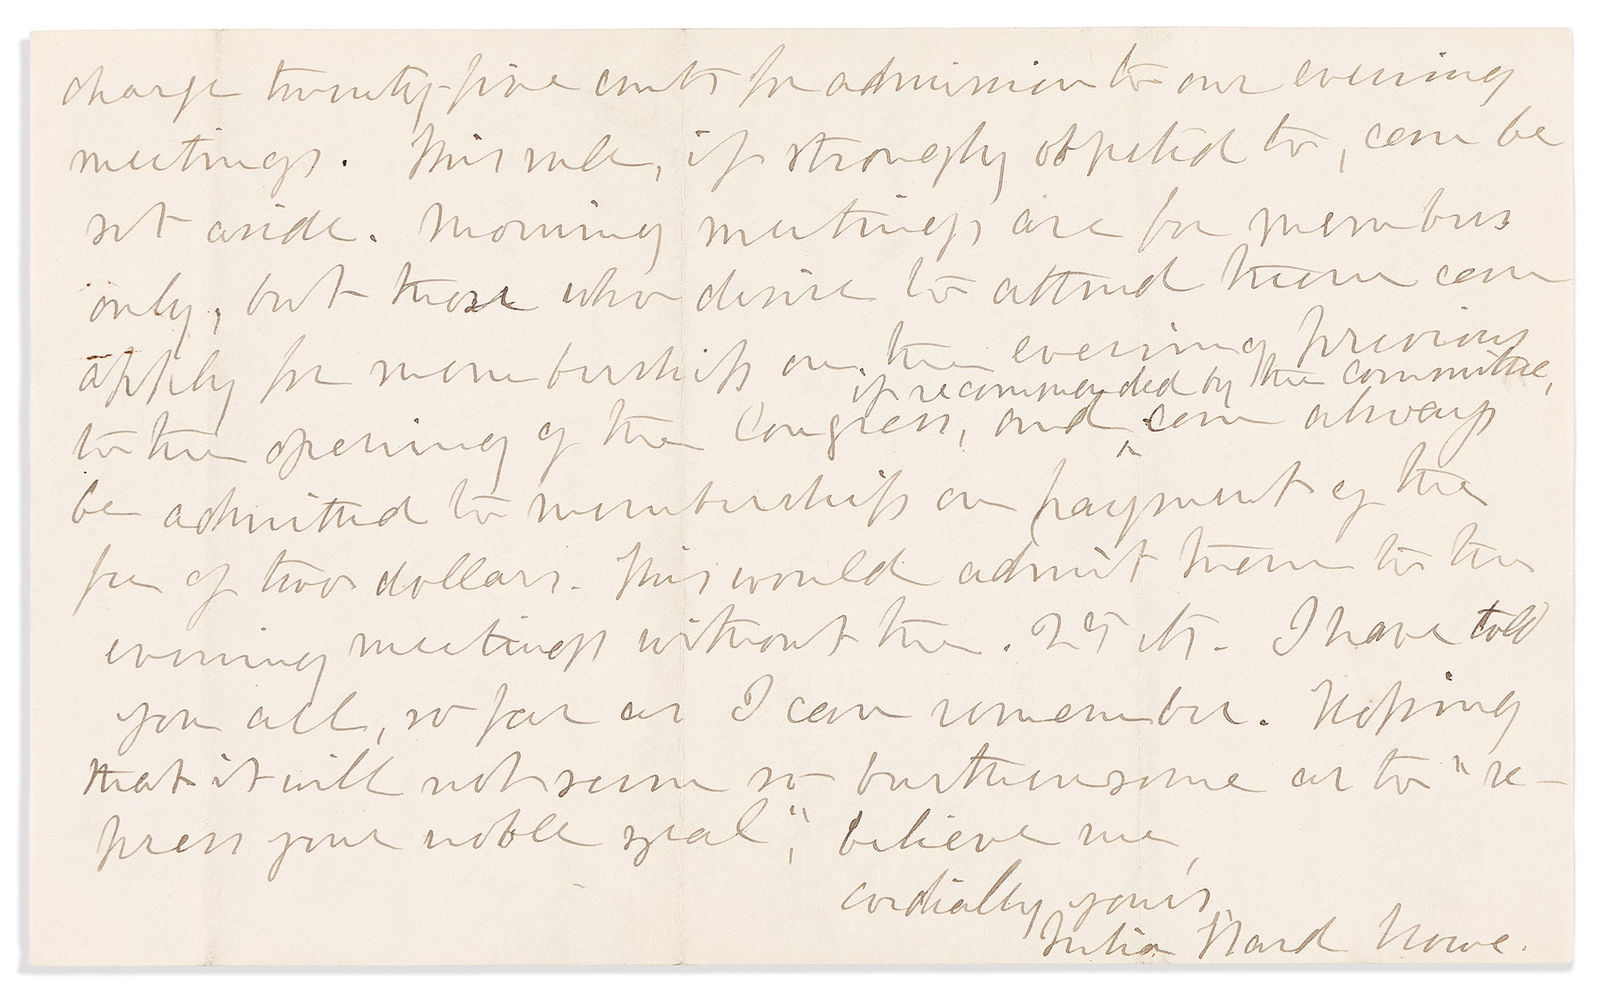 charge twenty-five cents for admission to our evening
meetings. This rule, if strongly objected to, can be
set aside. Morning meetings are for members
only, but those who desire to attend them can
apply for membership on the evening previous
if recommended by the committee,
to the opening of the Congress, and ^ can always
be admitted to membership on payment of the
fee of two dollars. This would admit them to the
evening meetings without the . 25 cts. I have told
you all, so far as I can remember. Hoping
that it will not seem so burthensome as to "re-
press your noble zeal", believe me,
cordially yours,
Julia Ward Howe.